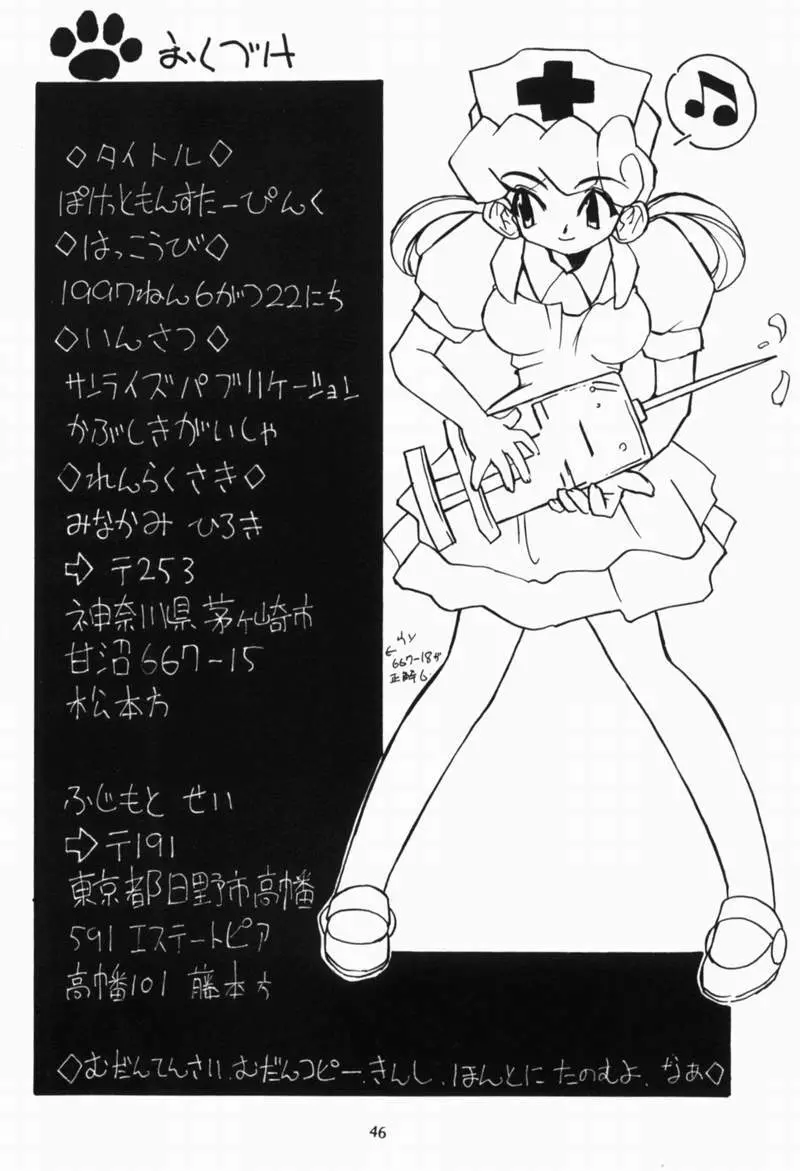 おくづけ
◇タイトル◇
ぽけっともんすたーぴんく
◇はっこうび◇
1997ねん6がつ22にち
◇いんさつ◇
サンライズパブリケーション
かぶしきがいしゃ
◇れんらくさき◇
みなかみ ひろき
⇨〒253
神奈川県茅ヶ崎市
甘沼667-15
松本方
ふじもと せい
⇨〒191
東京都日野市高幡
591 エステートピア
高幡101 藤本方
◇むだんてんさい、むだんコピー、きんし、ほんとに たのむよ、なあ◇
←ウソ
667-18が
46